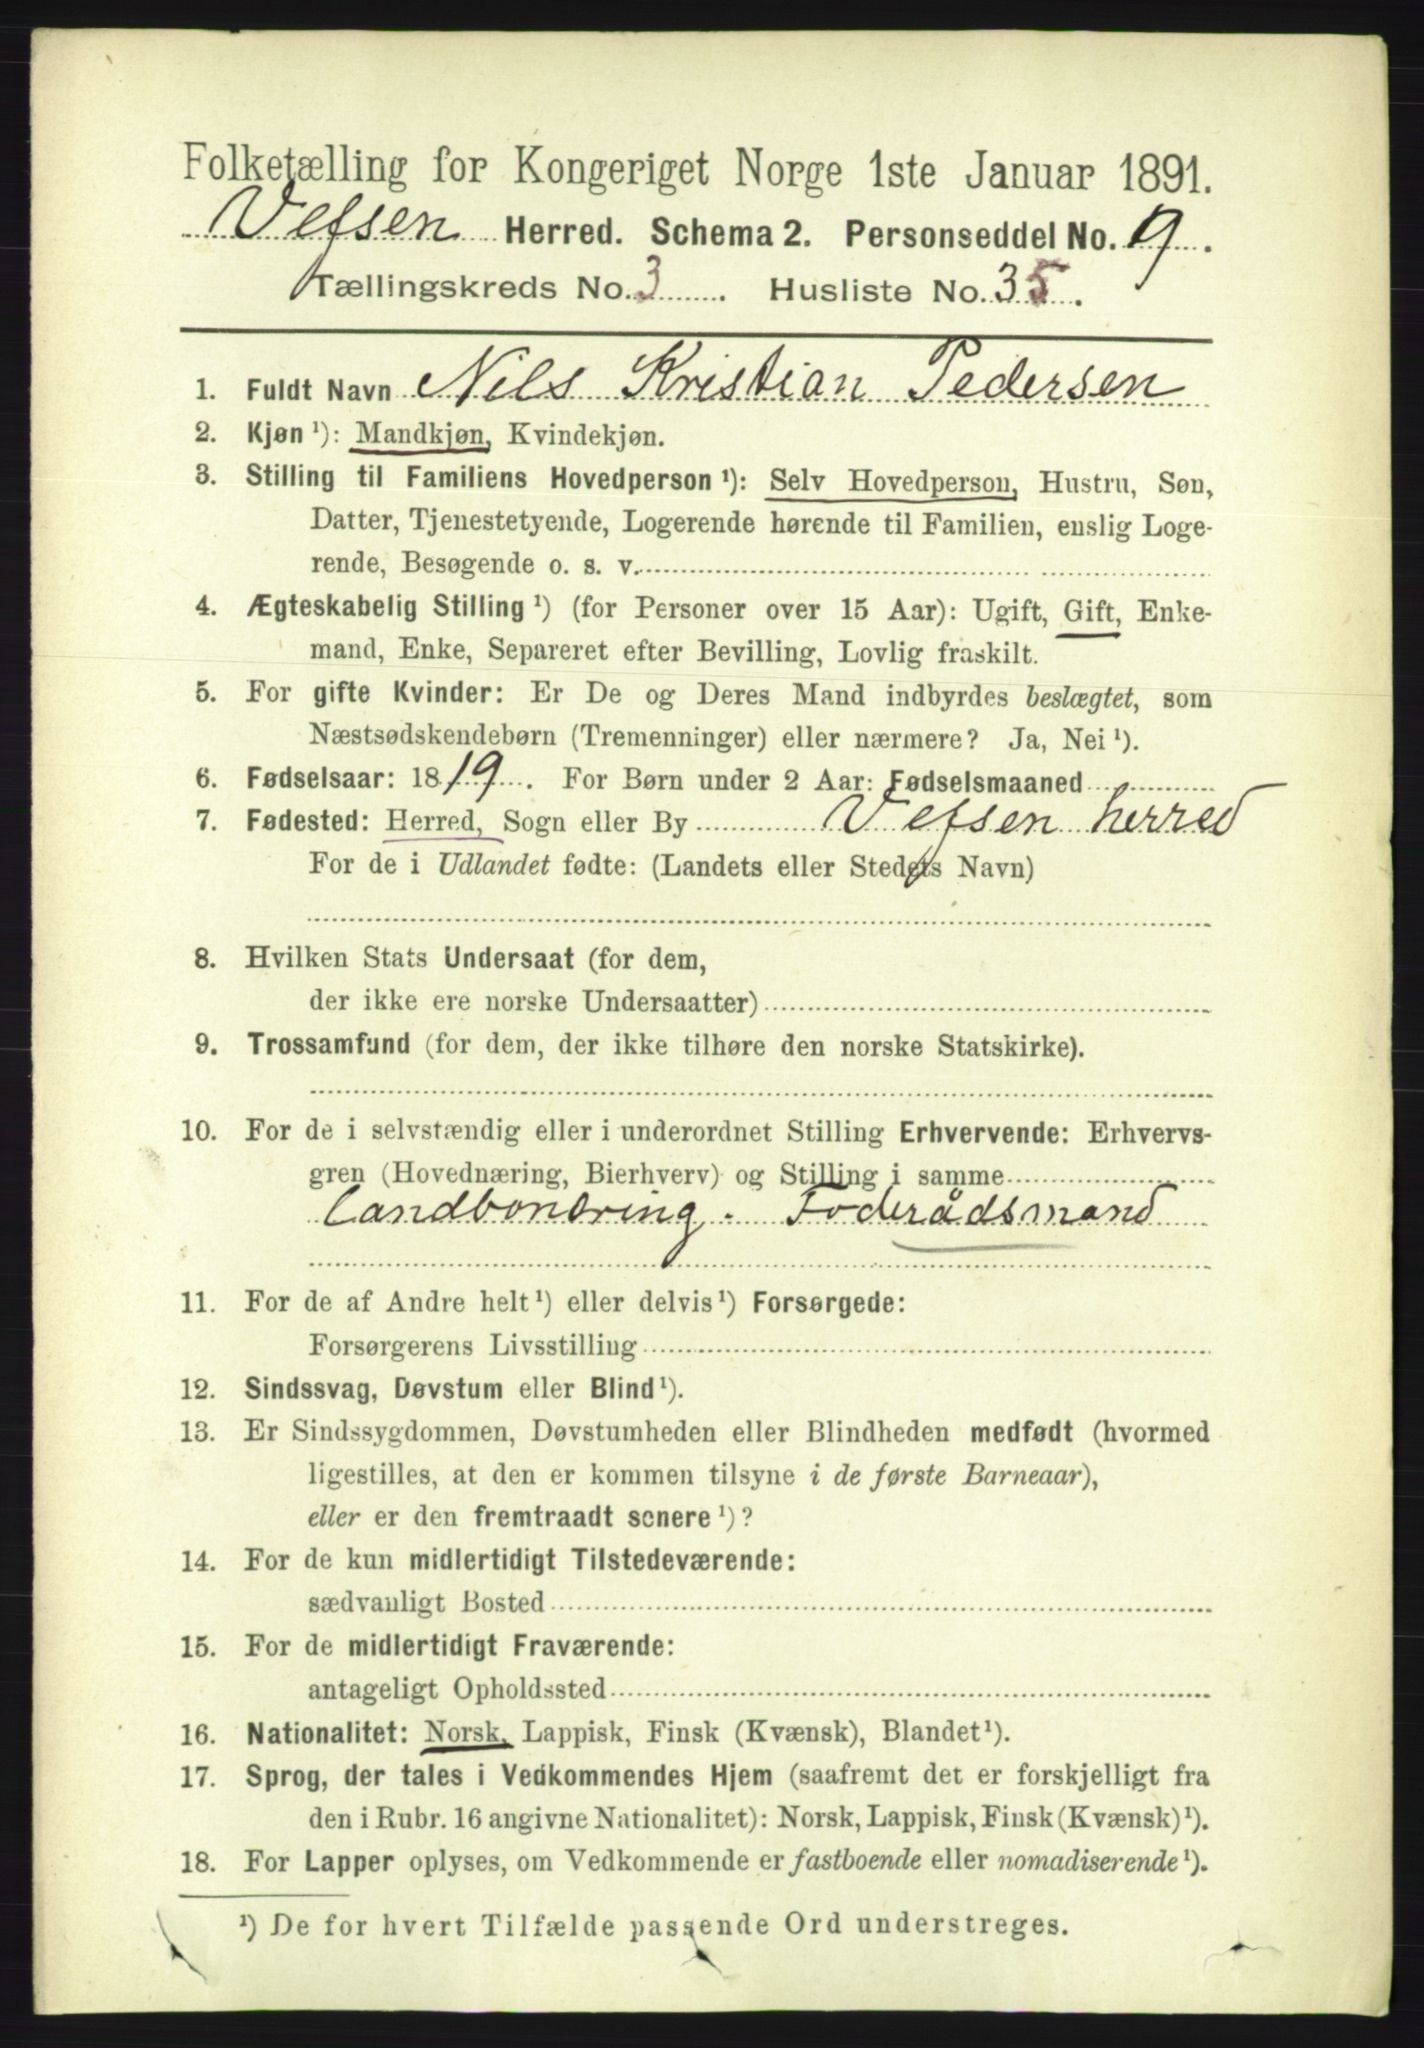 Folketælling for Kongeriget Norge 1ste Januar 1891.
Vefsen Herred. Schema 2. Personseddel No. 9.
Tællingskreds No. 3. Husliste No. 35.
1. Fuldt Navn Nils Kristian Pedersen
2. Kjøn ¹): Mandkjøn, Kvindekjøn.
3. Stilling til Familiens Hovedperson ¹): Selv Hovedperson, Hustru, Søn,
Datter, Tjenestetyende, Logerende hørende til Familien, enslig Loge-
rende, Besøgende o. s. v.
4. Ægteskabelig Stilling ¹) (for Personer over 15 Aar): Ugift, Gift, Enke-
mand, Enke, Separeret efter Bevilling, Lovlig fraskilt.
5. For gifte Kvinder: Er De og Deres Mand indbyrdes beslægtet, som
Næstsødskendebørn (Tremenninger) eller nærmere? Ja, Nei ¹).
6. Fødselsaar: 1819. For Børn under 2 Aar: Fødselsmaaned
7. Fødested: Herred, Sogn eller By Vefsen herred
For de i Udlandet fødte: (Landets eller Stedets Navn)
8. Hvilken Stats Undersaat (for dem,
der ikke ere norske Undersaatter)
9. Trossamfund (for dem, der ikke tilhøre den norske Statskirke).
10. For de i selvstændig eller i underordnet Stilling Erhvervende: Erhvervs-
gren (Hovednæring, Bierhverv) og Stilling i samme
Landbonæring. Foderådsmand
11. For de af Andre helt ¹) eller delvis ¹) Forsørgede:
Forsørgerens Livsstilling
12. Sindssvag, Døvstum eller Blind ¹).
13. Er Sindssygdommen, Døvstumheden eller Blindheden medfødt (hvormed
ligestilles, at den er kommen tilsyne i de første Barneaar),
eller er den fremtraadt senere ¹)?
14. For de kun midlertidigt Tilstedeværende:
sædvanligt Bosted
15. For de midlertidigt Fraværende:
antageligt Opholdssted
16. Nationalitet: Norsk, Lappisk, Finsk (Kvænsk), Blandet ¹).
17. Sprog, der tales i Vedkommendes Hjem (saafremt det er forskjelligt fra
den i Rubr. 16 angivne Nationalitet): Norsk, Lappisk, Finsk (Kvænsk) ¹).
18. For Lapper oplyses, om Vedkommende er fastboende eller nomadiserende ¹).
¹) De for hvert Tilfælde passende Ord understreges.